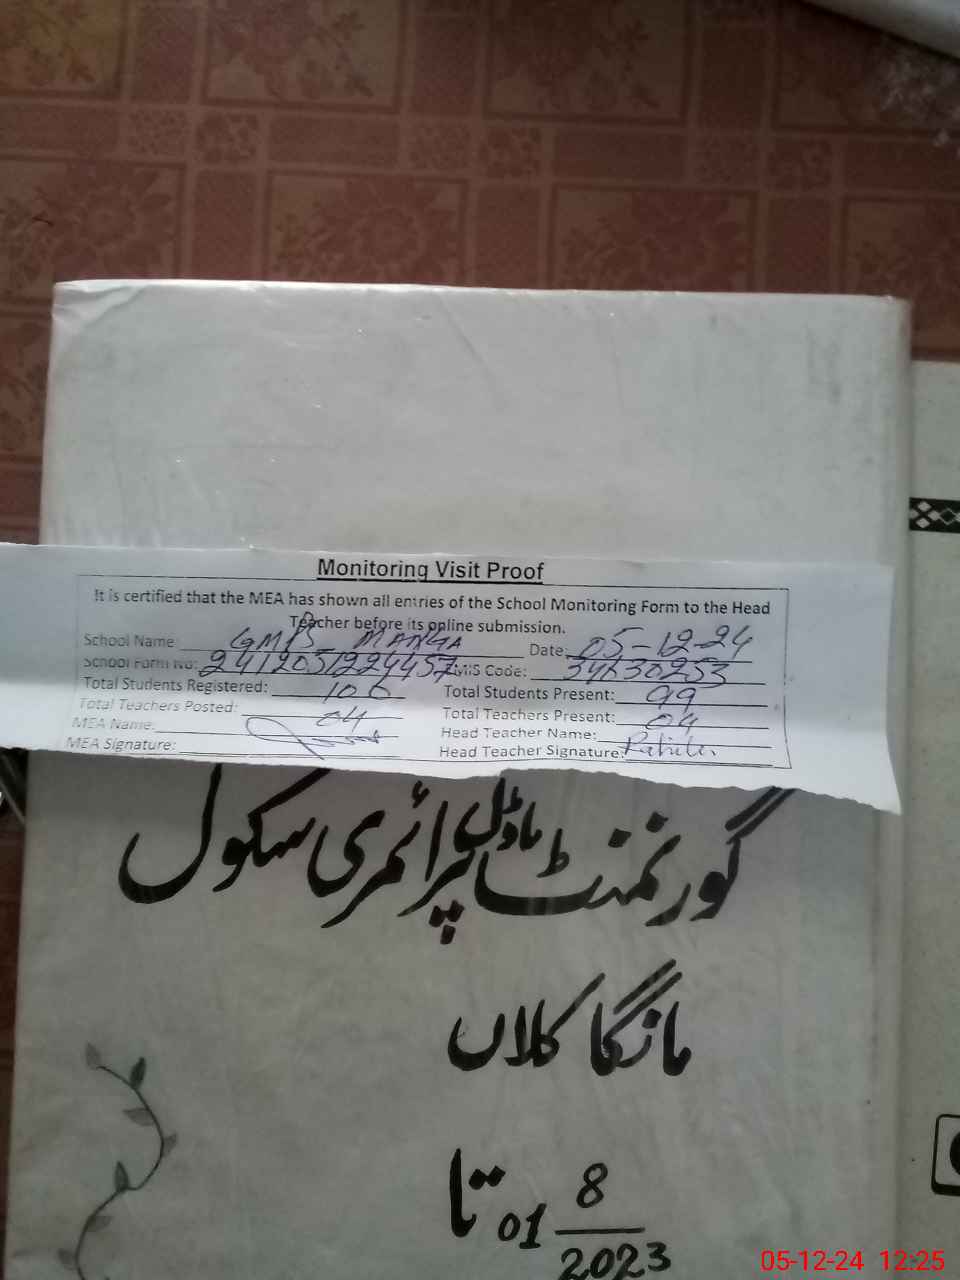 Monitoring Visit Proof
It is certified that the MEA has shown all entries of the School Monitoring Form to the Head
Teacher before its online submission.
School Name: GMPS MANGA Date: 05-12-24
School Form No: 2412051224457 EMIS Code: 34630253
Total Students Registered: 106 Total Students Present: 99
Total Teachers Posted: 04 Total Teachers Present: 04
MEA Name: Head Teacher Name:
MEA Signature: Head Teacher Signature:
گورنمنٹ ماڈل پرائمری سکول
مانگا کلاں
01 8/2023 تا
05-12-24 12:25